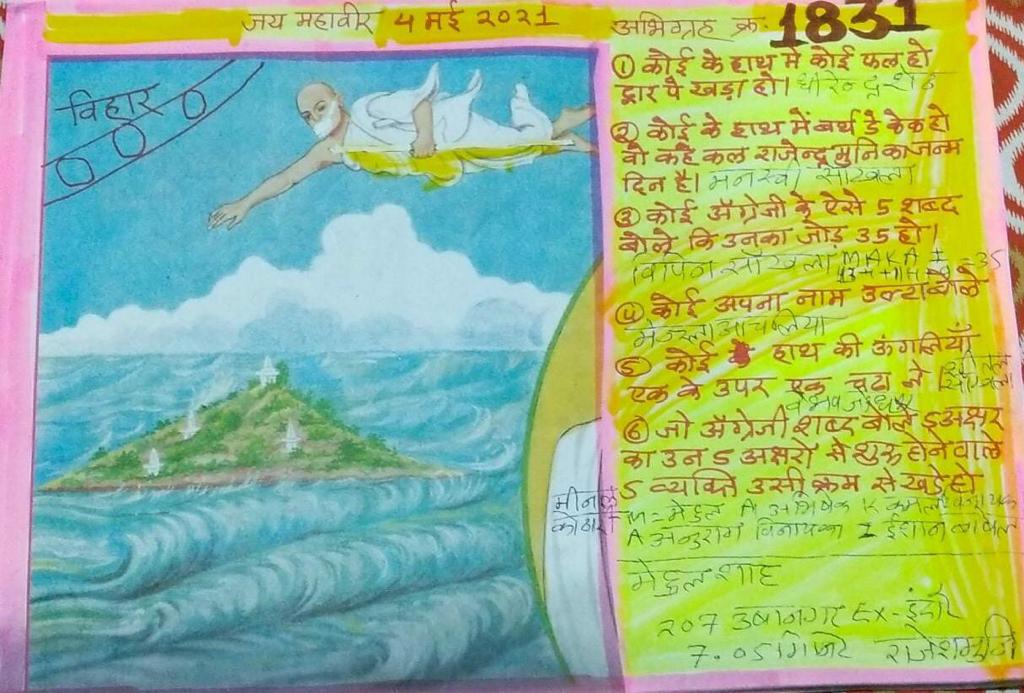 जय महावीर 4 मई 2021
अभिग्रह क्र. 1831
विहार
① कोई के हाथ में कोई फल हो
द्वार पे खड़ा हो।
② कोई के हाथ में बर्थ डे केक हो
वो कहे कल राजेन्द्र मुनि का जन्म
दिन है। मनस्वी साँखला
③ कोई अँग्रेजी के ऐसे 5 शब्द
बोले कि उनका जोड़ 35 हो।
विपिन साँखला MAKA I = 35
④ कोई अपना नाम उल्टा बोले
⑤ कोई हाथ की ऊंगलियाँ
एक के उपर एक चढ़ा ले
⑥ जो अँग्रेजी शब्द बोले 5 अक्षर
का उन 5 अक्षरों से शुरू होने वाले
5 व्यक्ति उसी क्रम से खड़े हो
मीनल
कोठारी
M = मेहुल A अभिषेक K कमलेश
A अनुराग विनायका I ईशान
मेहुल शाह
207 उषानगर Ex- इंदौर
7.05 मिनिट राजेशमुनि